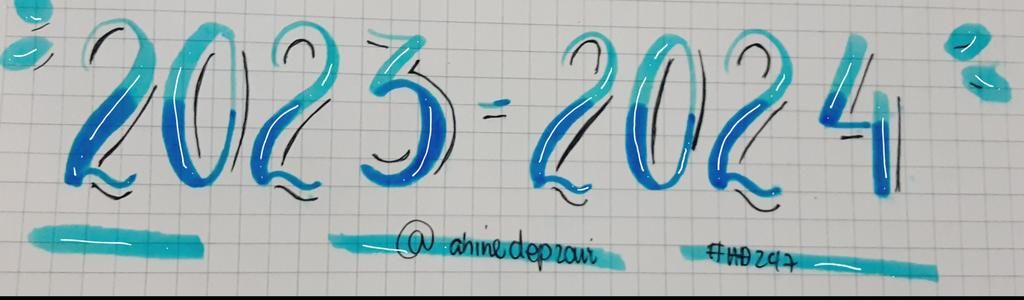 2023-2024
@ ahinedeprovi #HD247